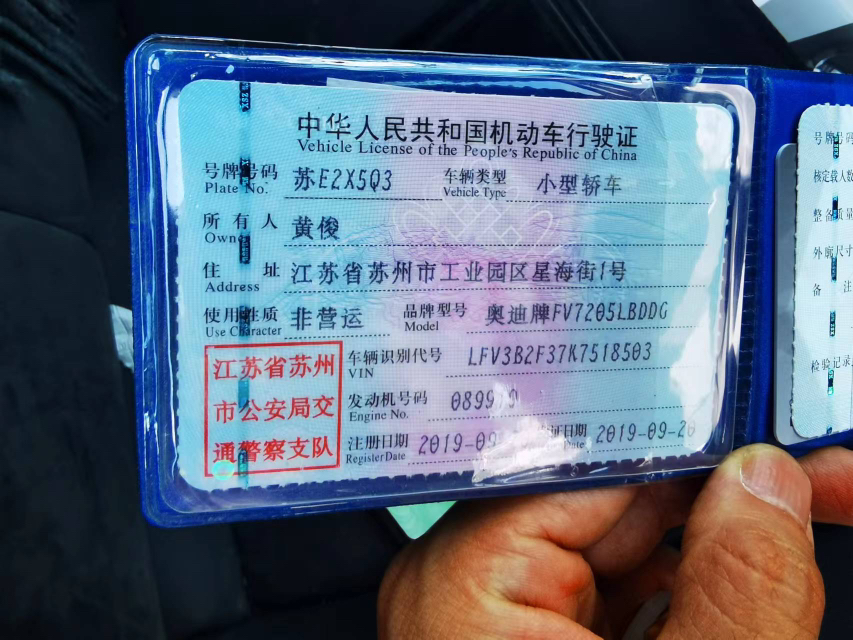 中华人民共和国机动车行驶证
Vehicle License of the People's Republic of China
号牌号码 苏E2X5Q3 车辆类型 小型轿车
Plate No. Vehicle Type
所有人 黄俊
Owner
住址 江苏省苏州市工业园区星海街1号
Address
使用性质 非营运 品牌型号 奥迪牌FV7205LBDDG
Use Character Model
江苏省苏州
市公安局交
通警察支队
车辆识别代号 LFV3B2F37K7518503
VIN
发动机号码
Engine No.
注册日期 2019-09 证日期 2019-09-20
Register Date Date
号牌号码
核定载人数
整备质量
外廓尺寸
备注
检验记录